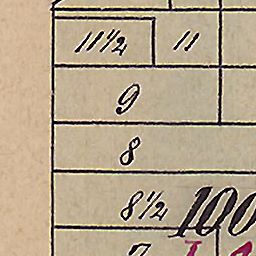 11½ 11
9
8
8½ 100
7